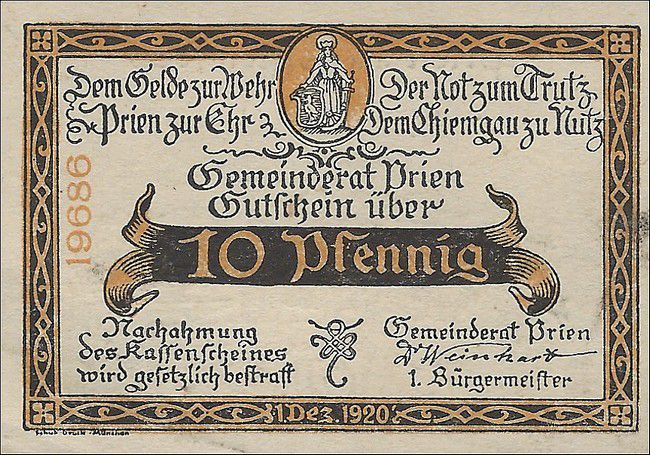 Dem Gelde zur Wehr
Prien zur Ehr
Der Not zum Trutz
Dem Chiemgau zu Nutz
Gemeinderat Prien
Gutschein über
10 Pfennig
19686
Nachahmung
des Kassenscheines
wird gesetzlich bestraft
Gemeinderat Prien
Dr Weinhart
1. Bürgermeister
31 Dez. 1920
Druck - München